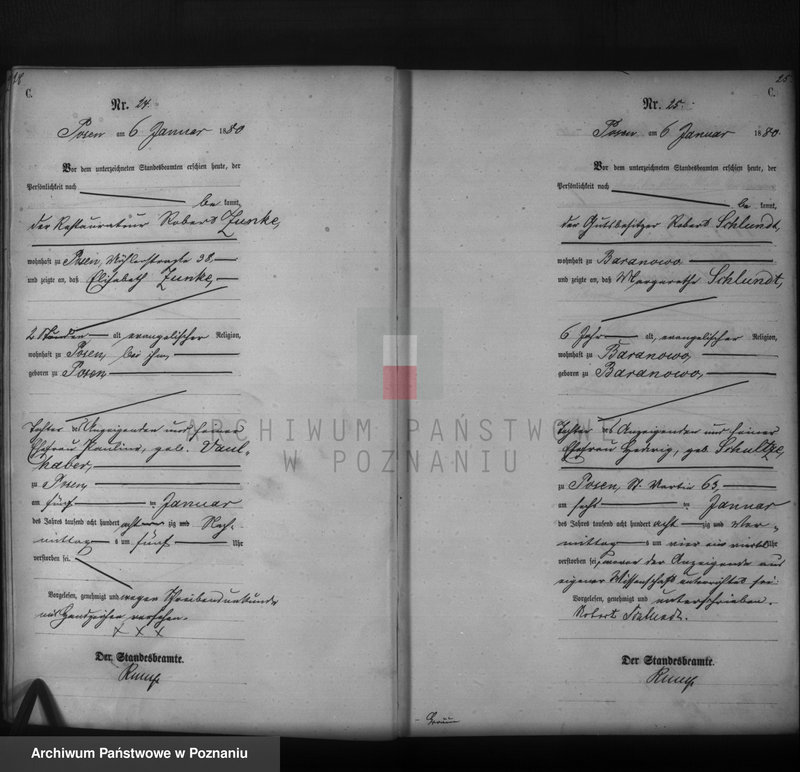 C.
Nr. 24.
Posen am 6 Januar 1880
Vor dem unterzeichneten Standesbeamten erschien heute, der
Persönlichkeit nach
be kannt,
der Restaurateur Robert Zunke,
wohnhaft zu Posen, Mühlenstraße 38
und zeigte an, daß Elisabeth Zunke,
2 Stunden alt, evangelischer Religion,
wohnhaft zu Posen, bei ihm,
geboren zu Posen,
Tochter des Anzeigenden und seiner
Ehefrau Pauline, geb.
haber,
zu Posen,
am fünf ten Januar
des Jahres tausend acht hundert acht zig und Nach
mittag s um fünf Uhr
verstorben sei.
Vorgelesen, genehmigt und wegen Schreibensunkunde
mit Handzeichen versehen.
x x x
Der Standesbeamte.
25
C.
Nr. 25.
Posen am 6 Januar 1880.
Vor dem unterzeichneten Standesbeamten erschien heute, der
Persönlichkeit nach
be kannt,
der Gutsbesitzer Robert Schlundt,
wohnhaft zu Baranowo
und zeigte an, daß Margarethe Schlundt,
6 Jahr alt, evangelischer Religion,
wohnhaft zu Baranowo,
geboren zu Baranowo,
Tochter des Anzeigenden und seiner
Ehefrau Hedwig, geb. Schultze,
zu Posen, St. Martin 63,
am sechs ten Januar
des Jahres tausend acht hundert acht zig und Vor-
mittag s um vier ein viertel Uhr
verstorben sei, wovon der Anzeigende aus
eigener Wissenschaft unterrichtet sei
Vorgelesen, genehmigt und unterschrieben.
Robert Schlundt.
Der Standesbeamte.
ARCHIWUM PAŃSTWOWE
W POZNANIU
Archiwum Państwowe w Poznaniu